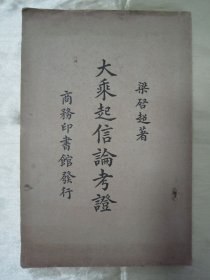 梁啓超著
大乘起信論考證
商務印書館發行